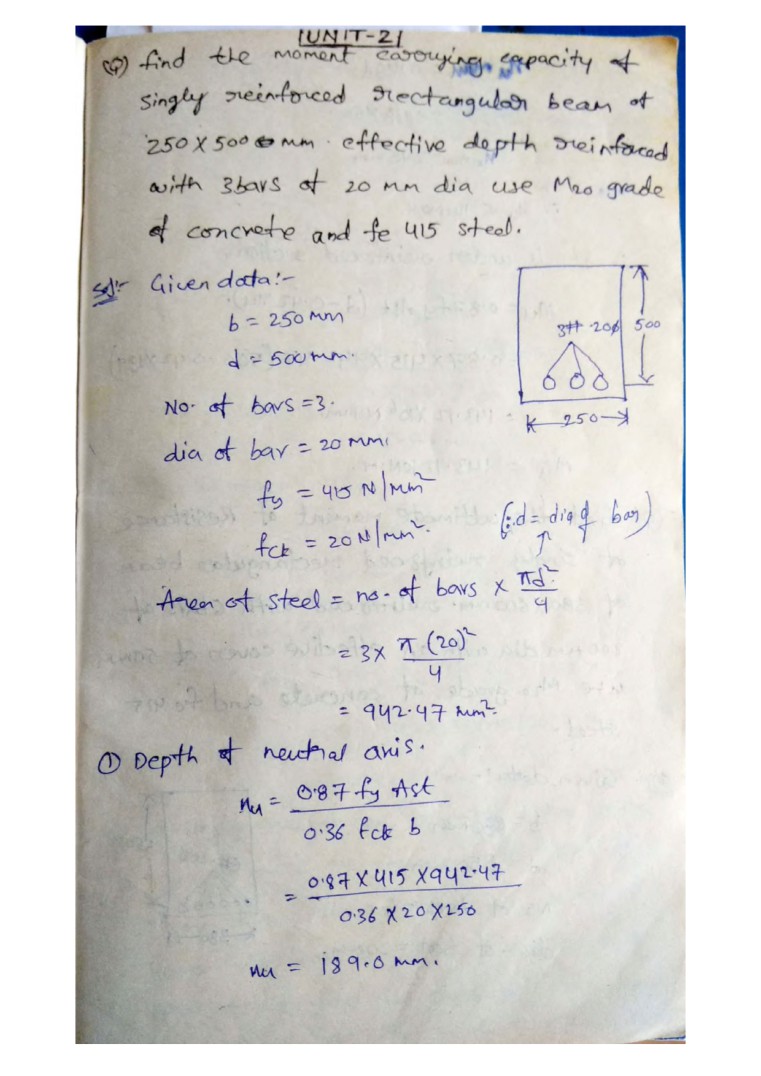 UNIT-2
Q) find the moment carrying capacity of
singly reinforced rectangular beam of
250 X 500 mm effective depth reinforced
with 3bars of 20 mm dia use M20 grade
of concrete and fe 415 steel.
Sol:- Given data:-
b = 250 mm
d = 500mm.
3# 20ϕ
500
250
No. of bars = 3.
dia of bar = 20 mm.
fy = 415 N/mm²
fck = 20 N/mm².
(∵ d = dia of bar)
Area of steel = no. of bars × πd²/4
= 3 × π (20)²/4
= 942.47 mm².
① Depth of neutral axis.
xu = 0.87 fy Ast / 0.36 fck b
= 0.87 X 415 X 942.47 / 0.36 X 20 X 250
xu = 189.0 mm.